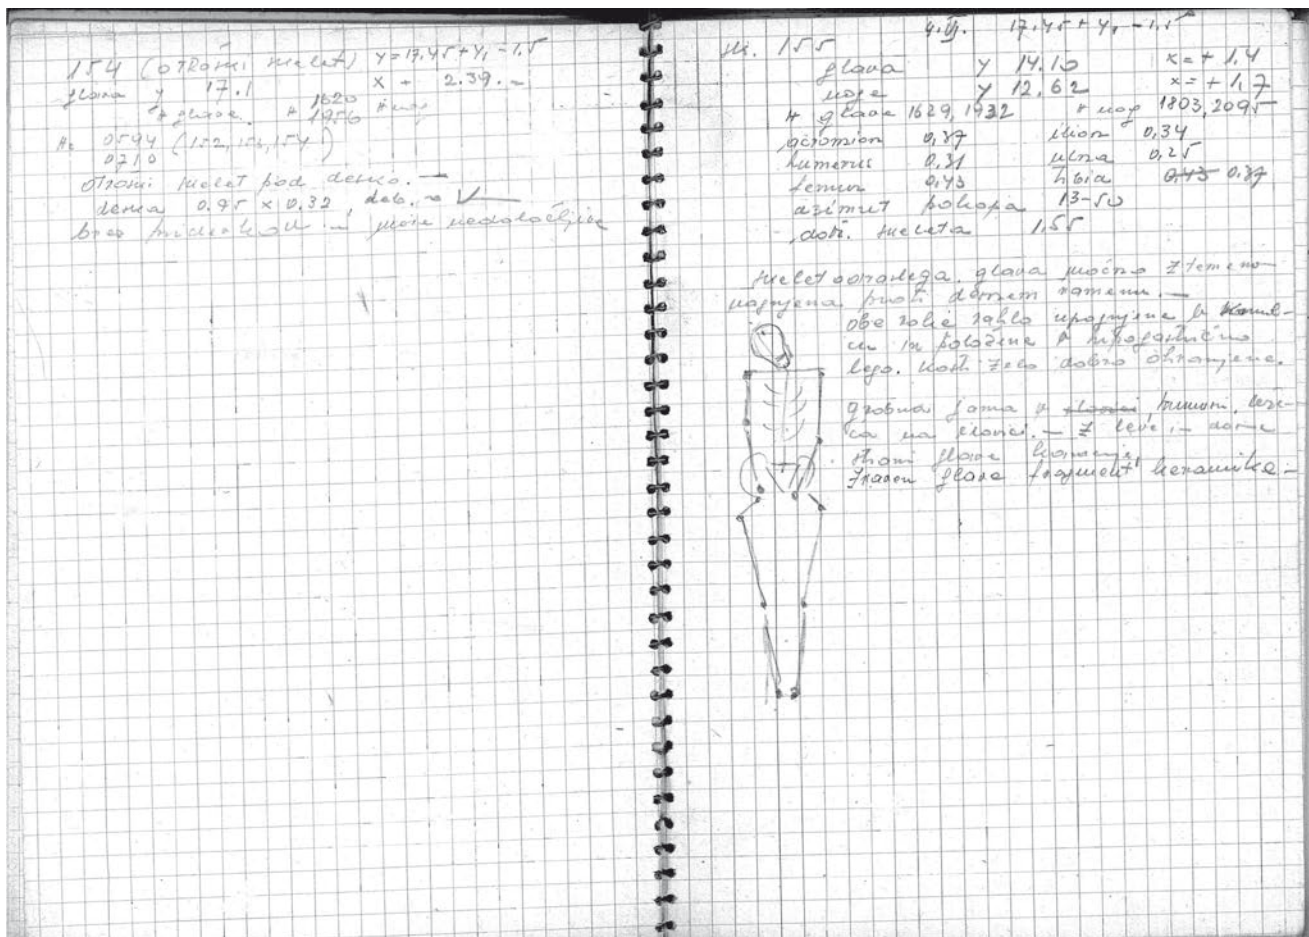 154 (otročni skelet) y=17.45+y, -1.5
glava y 17.1 x - 2.39.-
# glave # 1620 # nog
1956
H= 0594 (152, 153, 154)
0710
otročni skelet pod desko. -
deska 0.95 x 0.32, deb.
brez pridatkov -
17.45 + y, - 1.5
sk. 155
glava y 14.10 x=+ 1.4
noge y 12.62 x=+ 1,7
# glave 1629, 1932 # nog 1803, 2095
acromion 0,37 ilion 0,34
humerus 0,31 ulna 0,25
femur 0,43 tibia 0,43 0,37
azimut pokopa 13-50
dolž. skeleta 1,55
skelet odraslega. glava močno z temenom
nagnjena proti desnem ramenu. -
obe roke rahlo upognjene v komol-
cu in položene v hipogastrično
lego. Kosti zelo dobro ohranjene.
grobna jama v humusu,
na ilovici. - z leve in desne
strani glave kamenje,
zraven glave fragment keramike -